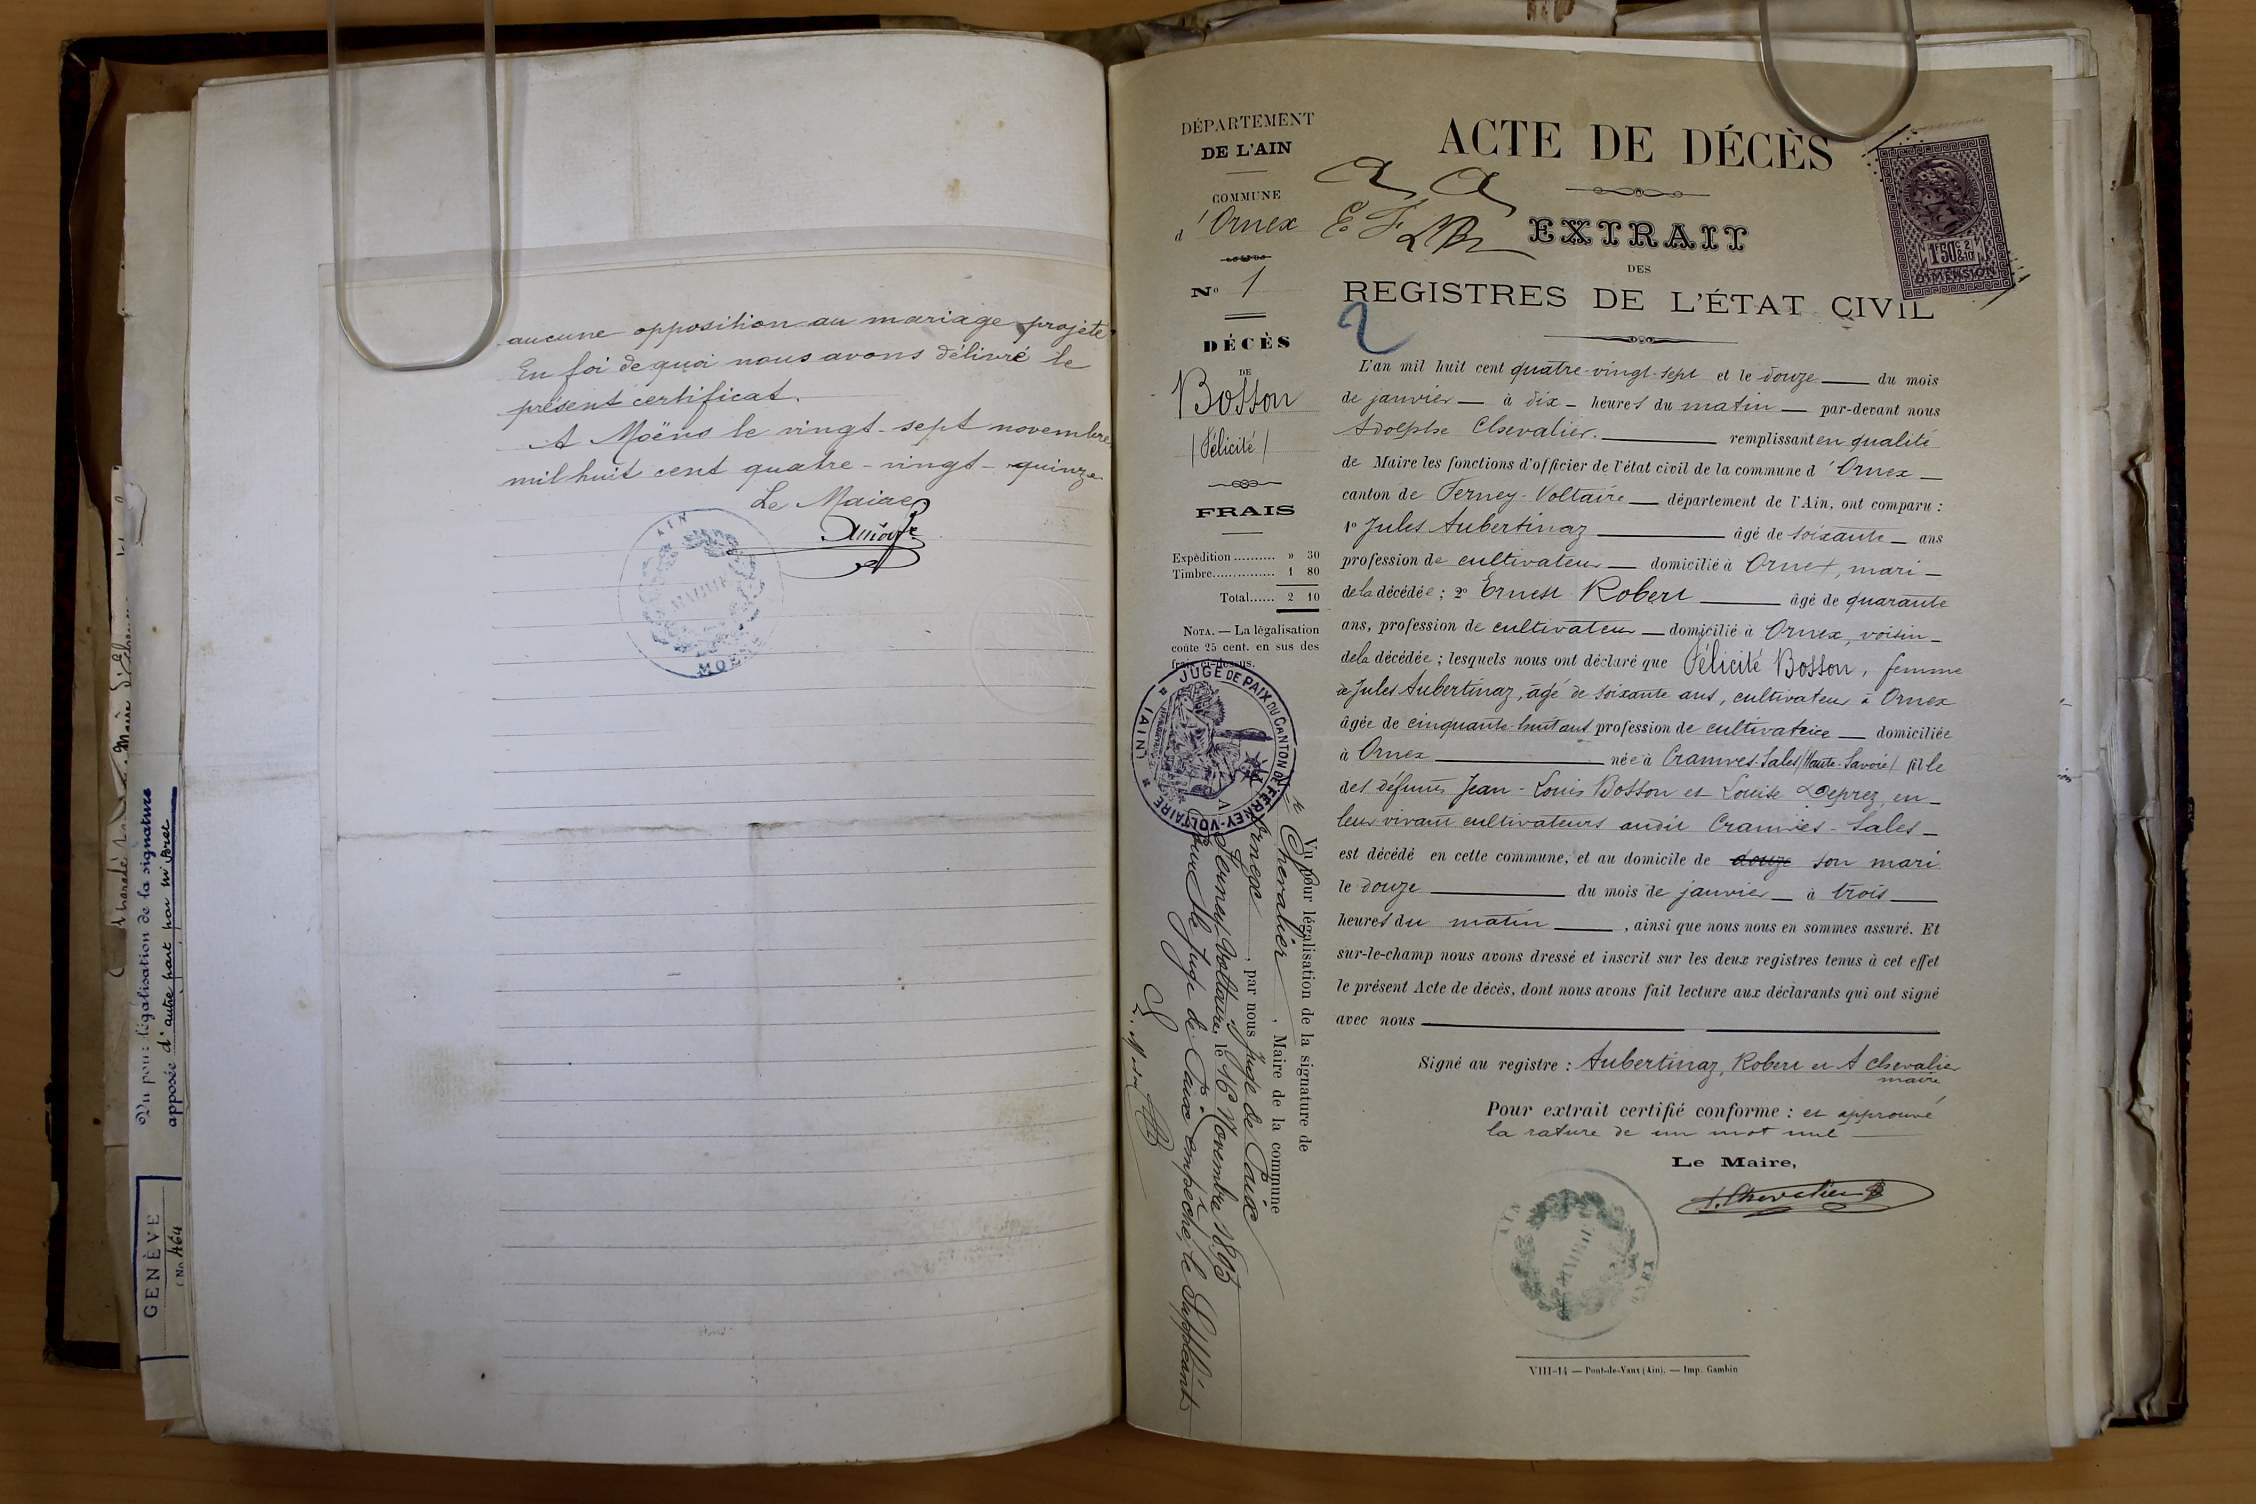 aucune opposition au mariage projeté.
En foi de quoi nous avons délivré le
présent certificat.
A Moëns le vingt-sept novembre
mil huit cent quatre-vingt-quinze
Le Maire
AIN
MAIRIE
MOENS
Vu pour légalisation de la signature
apposée d'autre part par
GENÈVE
No 464
DÉPARTEMENT
DE L'AIN
COMMUNE
d'Ornex
No 1
DÉCÈS
DE
Bosson
(Félicité)
FRAIS
Expédition .......... » 30
Timbre............... 1 80
Total...... 2 10
NOTA. — La légalisation
coûte 25 cent. en sus des
frais ci-dessus.
JUGE DE PAIX DU CANTON DE FERNEY-VOLTAIRE (AIN)
Vu pour légalisation de la signature de
Mr Chevalier, Maire de la commune
d'Ornex, par nous Juge de Paix
A Ferney-Voltaire, le 16 Novembre 1895
Pour Mr le Juge de Paix empêché, le Suppléant
ACTE DE DÉCÈS
EXTRAIT
DES
REGISTRES DE L'ÉTAT CIVIL
1f50c 2/10
DIMENSION
2
L'an mil huit cent quatre-vingt-sept et le douze du mois
de janvier à dix heures du matin par-devant nous
Adolphe Chevalier. remplissant en qualité
de Maire les fonctions d'officier de l'état civil de la commune d'Ornex
canton de Ferney-Voltaire département de l'Ain, ont comparu :
1o Jules Aubertinaz âgé de soixante ans
profession de cultivateur domicilié à Ornex, mari
de la décédée ; 2o Ernest Robert âgé de quarante
ans, profession de cultivateur domicilié à Ornex, voisin
de la décédée ; lesquels nous ont déclaré que Félicité Bosson, femme
de Jules Aubertinaz, âgé de soixante ans, cultivateur à Ornex
âgée de cinquante-huit ans profession de cultivatrice domiciliée
à Ornex née à Cranves-Sales (Haute-Savoie) fille
des défunts Jean-Louis Bosson et Louise Deprez, en
leur vivant cultivateurs audit Cranves-Sales
est décédé en cette commune, et au domicile de douze son mari
le douze du mois de janvier à trois
heures du matin, ainsi que nous nous en sommes assuré. Et
sur-le-champ nous avons dressé et inscrit sur les deux registres tenus à cet effet
le présent Acte de décès, dont nous avons fait lecture aux déclarants qui ont signé
avec nous
Signé au registre : Aubertinaz, Robert et A Chevalier
maire
Pour extrait certifié conforme : et approuvé
la rature de un mot nul
Le Maire,
A. Chevalier
AIN
MAIRIE
ORNEX
VIII-14 — Pont-de-Vaux (Ain). — Imp. Gambin